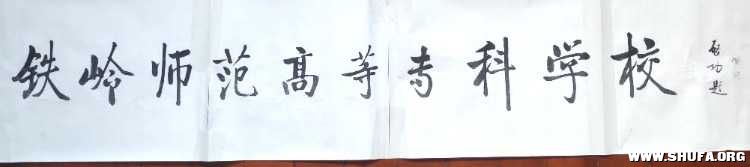 铁岭师范高等专科学校
启功题
WWW.SHUFA.ORG